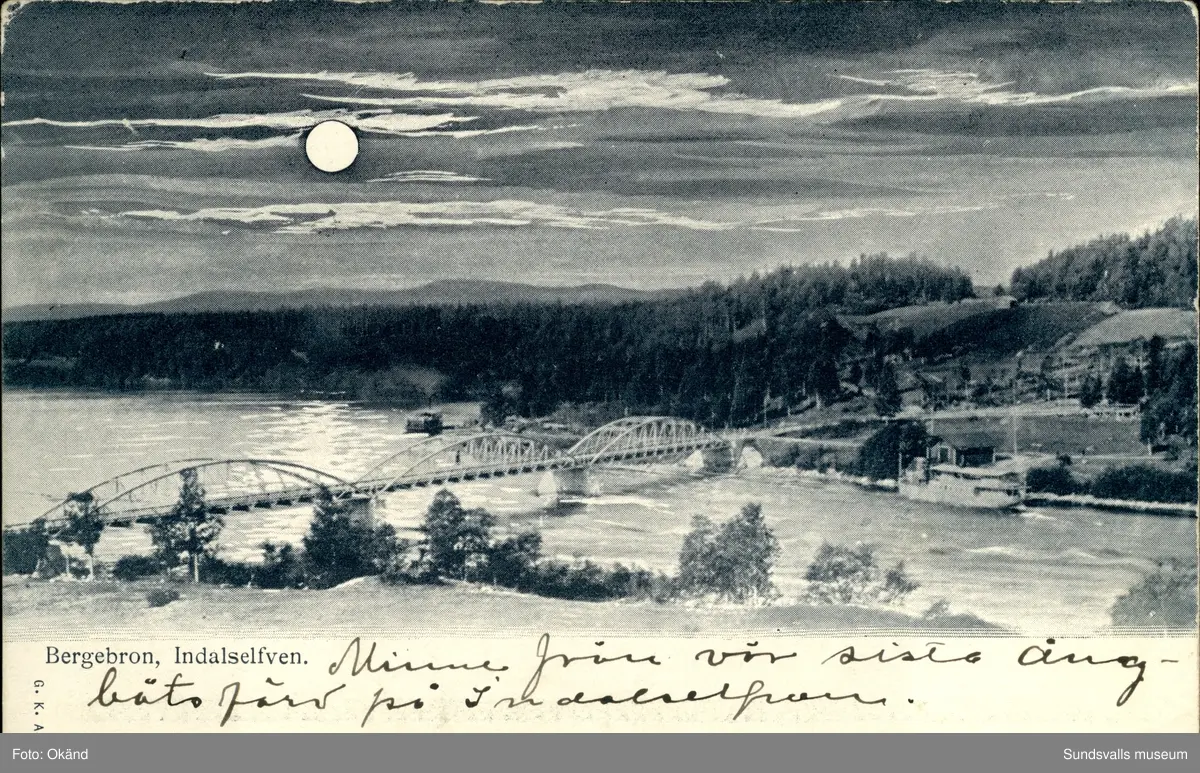 Bergebron, Indalselfven. Minne från vår sista ång-
båtsfärd på Indalselfven.
G. K. A
Foto: Okänd
Sundsvalls museum